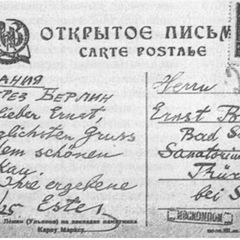 ОТКРЫТОЕ ПИСЬМ
CARTE POSTALE
АНИЯ
РЕЗ БЕРЛИН
ieber Ernst,
glichsten Gruss
em schönen
kau.
Ihre ergebene
Ester
25
Herrn
Ernst
Bad
Sanatoriu
Thür
bei S
МОСКОМПОМ
Ленин (Ульянов) на закладке памятника
Карлу Марксу.